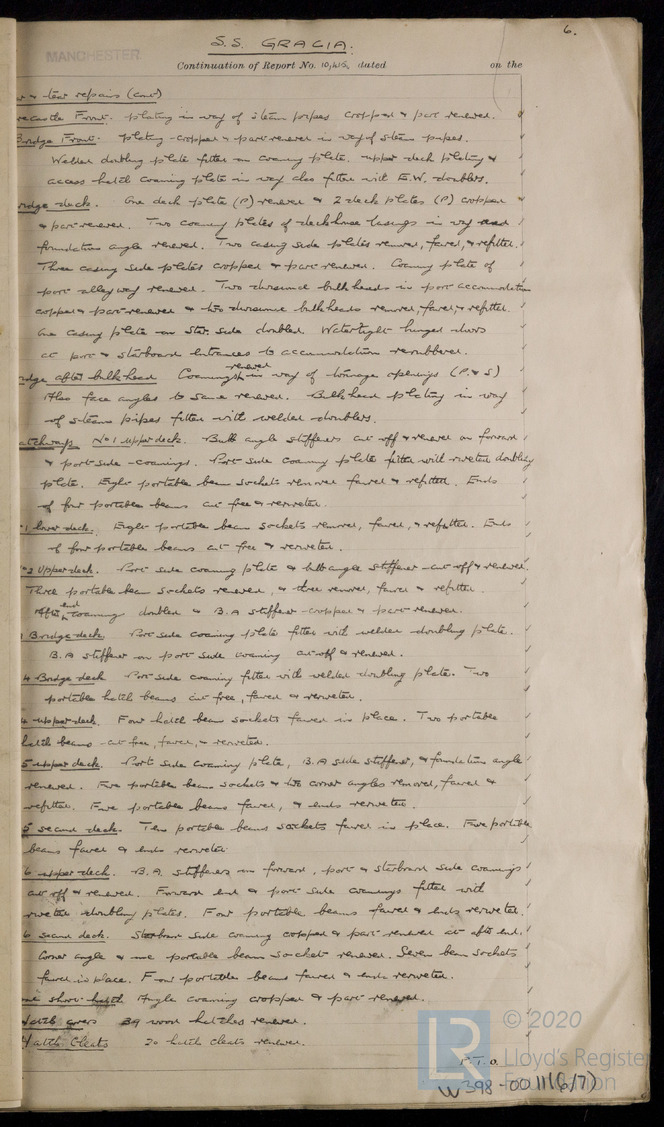 6.
S.S. GRACIA.
MANCHESTER
Continuation of Report No. 10,415. dated on the
& tear repairs (cont)
ecastle Front. plating in way of steam pipes cropped & part renewed.
Bridge Front. Plating cropped & part renewed in way of steam pipes.
Welded doubling plate fitted on coaming plate. upper deck plating &
access hatch coaming plate in way also fitted with E.W. doublers.
ridge deck. One deck plate (P) renewed & 2 deck plates (P) cropped
& part renewed. Two coaming plates of deckhouse casings in way
foundation angle renewed. Two casing side plates removed, faired, & refitted.
Three casing side plates cropped & part renewed. Coaming plate of
port alleyway renewed. Two divisional bulkheads in port accommodation
cropped & part renewed & two divisional bulkheads removed, faired, & refitted.
One casing plate on star. side doubled. Watertight hinged doors
at port & starboard entrances to accommodation rerubbered.
idge after bulkhead Coamings renewed in way of tonnage openings (P. & S)
Also face angles to same renewed. Bulkhead plating in way
of steam pipes fitted with welded doublers.
atchways No 1 upper deck. Bulb angle stiffeners cut off & renewed on forward
& port side coamings. Port side coaming plate fitted with riveted doubling
plate. Eight portable beam sockets removed faired & refitted. Ends
of four portable beams cut free & reriveted.
1 lower deck. Eight portable beam sockets removed, faired, & refitted. Ends
of four portable beams cut free & reriveted.
2 Upper deck. Port side coaming plate & bulb angle stiffener cut off & renewed.
Three portable beam sockets renewed, & three removed, faired & refitted.
After end coaming doubled & B.A stiffener cropped & part renewed.
Bridge deck Port side coaming plate fitted with welded doubling plate.
B.A stiffener on port side coaming cut off & renewed.
4 Bridge deck Port side coaming fitted with welded doubling plate. Two
portable hatch beams cut free, faired & reriveted.
4 upper deck. Four hatch beam sockets faired in place. Two portable
hatch beams cut free, faired, & reriveted.
5 upper deck. Port side coaming plate, B.A side stiffener, & foundation angle
renewed. Five portable beam sockets & two corner angles removed, faired &
refitted. Five portable beams faired, & ends reriveted.
5 second deck. Ten portable beams sockets faired in place. Five portable
beams faired & ends reriveted.
6 upper deck. B.A. stiffeners on forward, port & starboard side coamings
cut off & renewed. Forward end & port side coamings fitted with
riveted doubling plates. Four portable beams faired & ends reriveted.
6 second deck. Starboard side coaming cropped & part renewed at after end.
Corner angle & one portable beam socket renewed. Seven beam sockets
faired in place. Four portable beams faired & ends reriveted.
hatch Angle coaming cropped & part renewed.
Hatch covers 39 wood hatches renewed.
Hatch Cleats 20 hatch cleats renewed.
P.T.O.
LR © 2020
Lloyd's Register
Foundation
W398-0011(6/7)